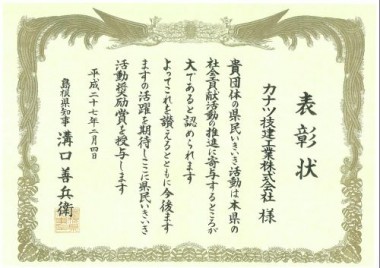 表彰状
カナツ技建工業株式会社 様
貴団体の県民いきいき活動は本県の
社会貢献活動の推進に寄与するところが
大であると認められます
よってこれを讃えるとともに今後ます
ますの活躍を期待しここに県民いきいき
活動奨励賞を授与します
平成二十七年二月四日
島根県知事 溝口善兵衛